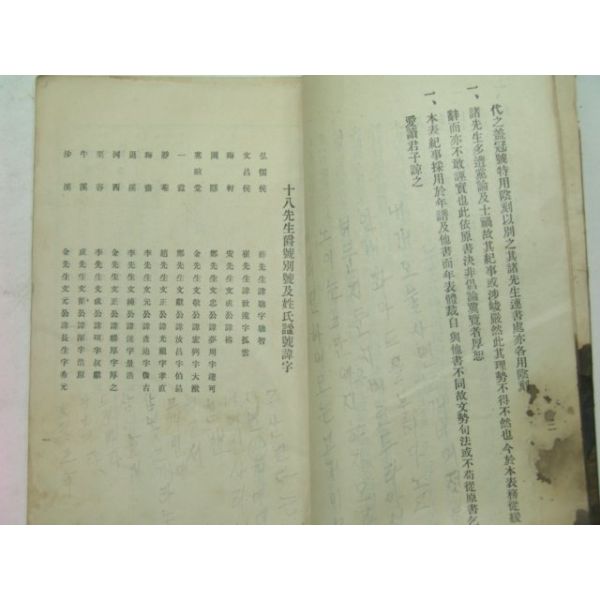 代之蓋冠號特用陰刻以別之其諸先生連書處亦各用陰刻
一、諸先生多遭黨論及士禍故其紀事或涉峻嚴然此其理勢不得不然也今於本表務從緩
辭而亦不敢誣實也此依原書決非倡論覽者厚恕
一、本表紀事採用於年譜及他書而年表體裁自與他書不同故文勢句法或不苟從原書
愛讀君子諒之
十八先生爵號別號及姓氏諡號諱字
弘儒侯 薛先生諱聰字聰智
文昌侯 崔先生諱致遠字孤雲
晦軒 安先生文成公諱裕
圃隱 鄭先生文忠公諱夢周字達可
寒暄堂 金先生文敬公諱宏弼字大猷
一蠹 鄭先生文獻公諱汝昌字伯勗
靜菴 趙先生文正公諱光祖字孝直
晦齋 李先生文元公諱彦迪字復古
退溪 李先生文純公諱滉字景浩
河西 金先生文正公諱麟厚字厚之
栗谷 李先生文成公諱珥字叔獻
牛溪 成先生文簡公諱渾字浩原
沙溪 金先生文元公諱長生字希元